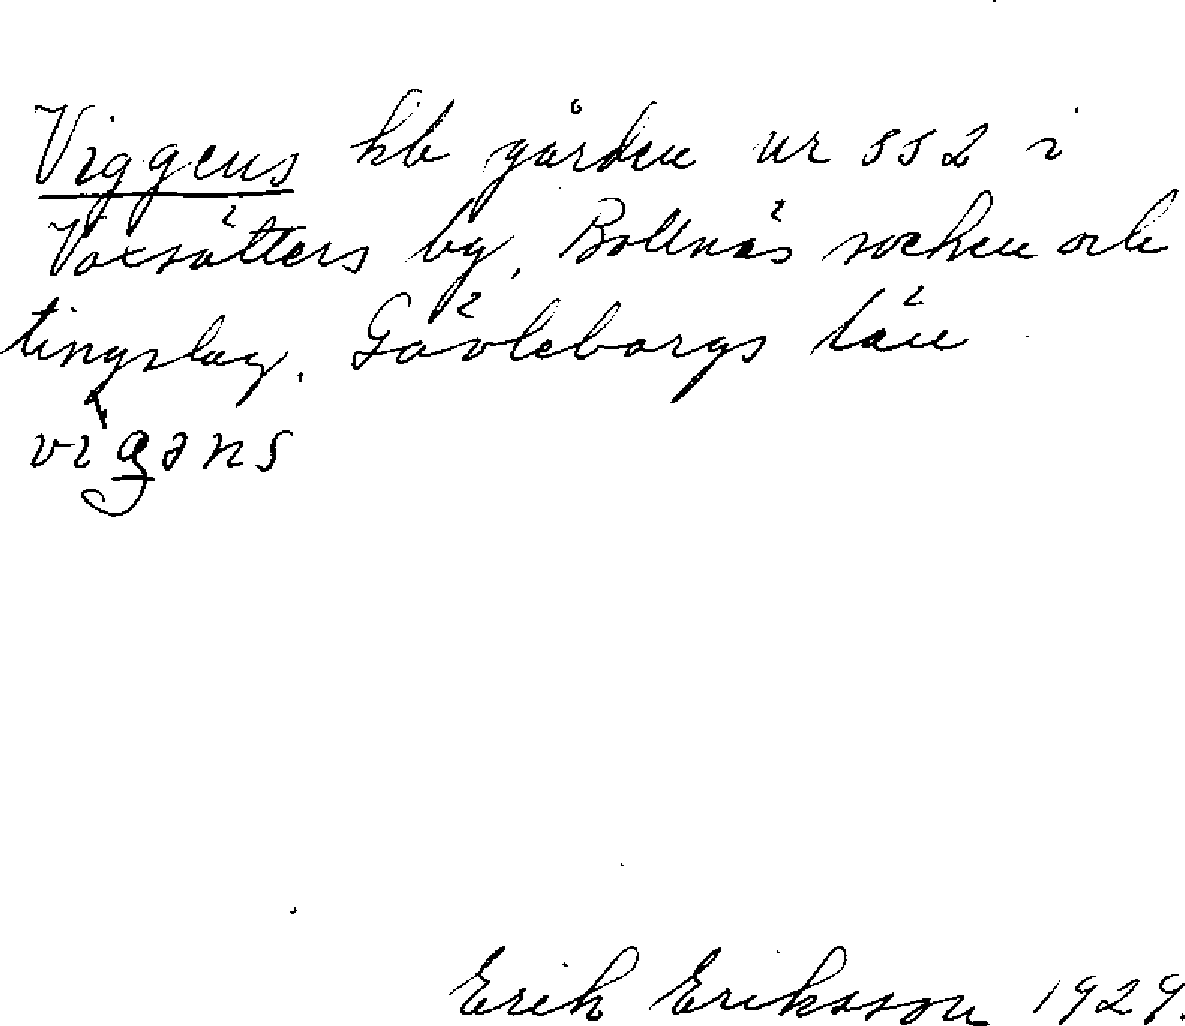 Viggens hb gården nr 552 i
Voxsätters by, Bollnäs socken och
tingslag. Gävleborgs län
vìgəns
Erik Eriksson 1929.